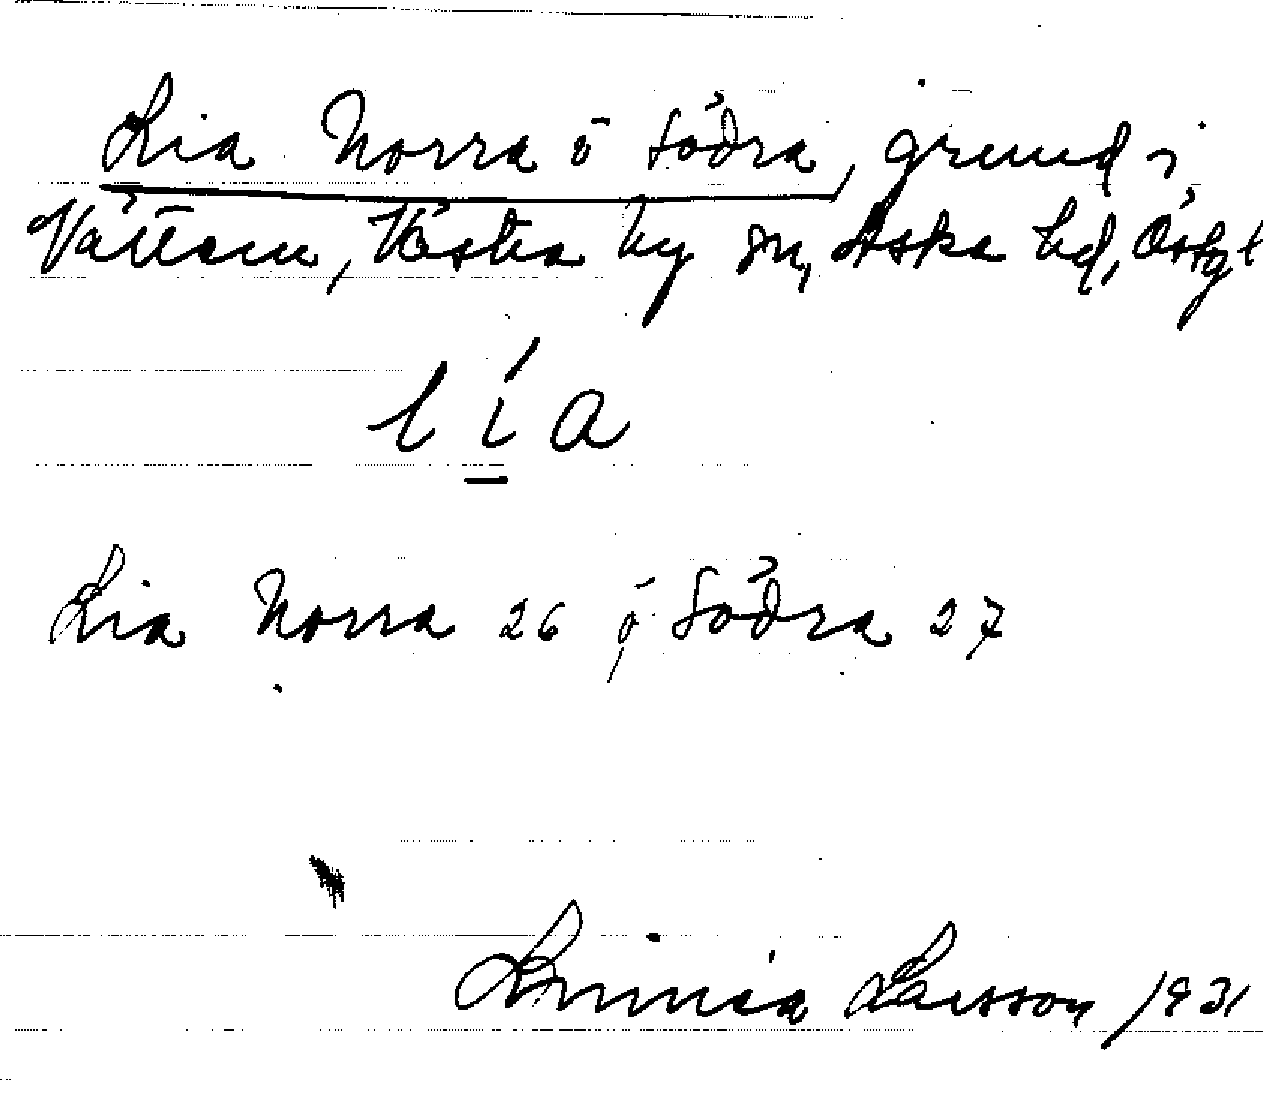 Lia Norra o Södra, grund i
Vättern, Västra Ny sn, Aska hd, Östgl
lía
Lia Norra 26 o Södra 27
Linnéa Larsson 1931